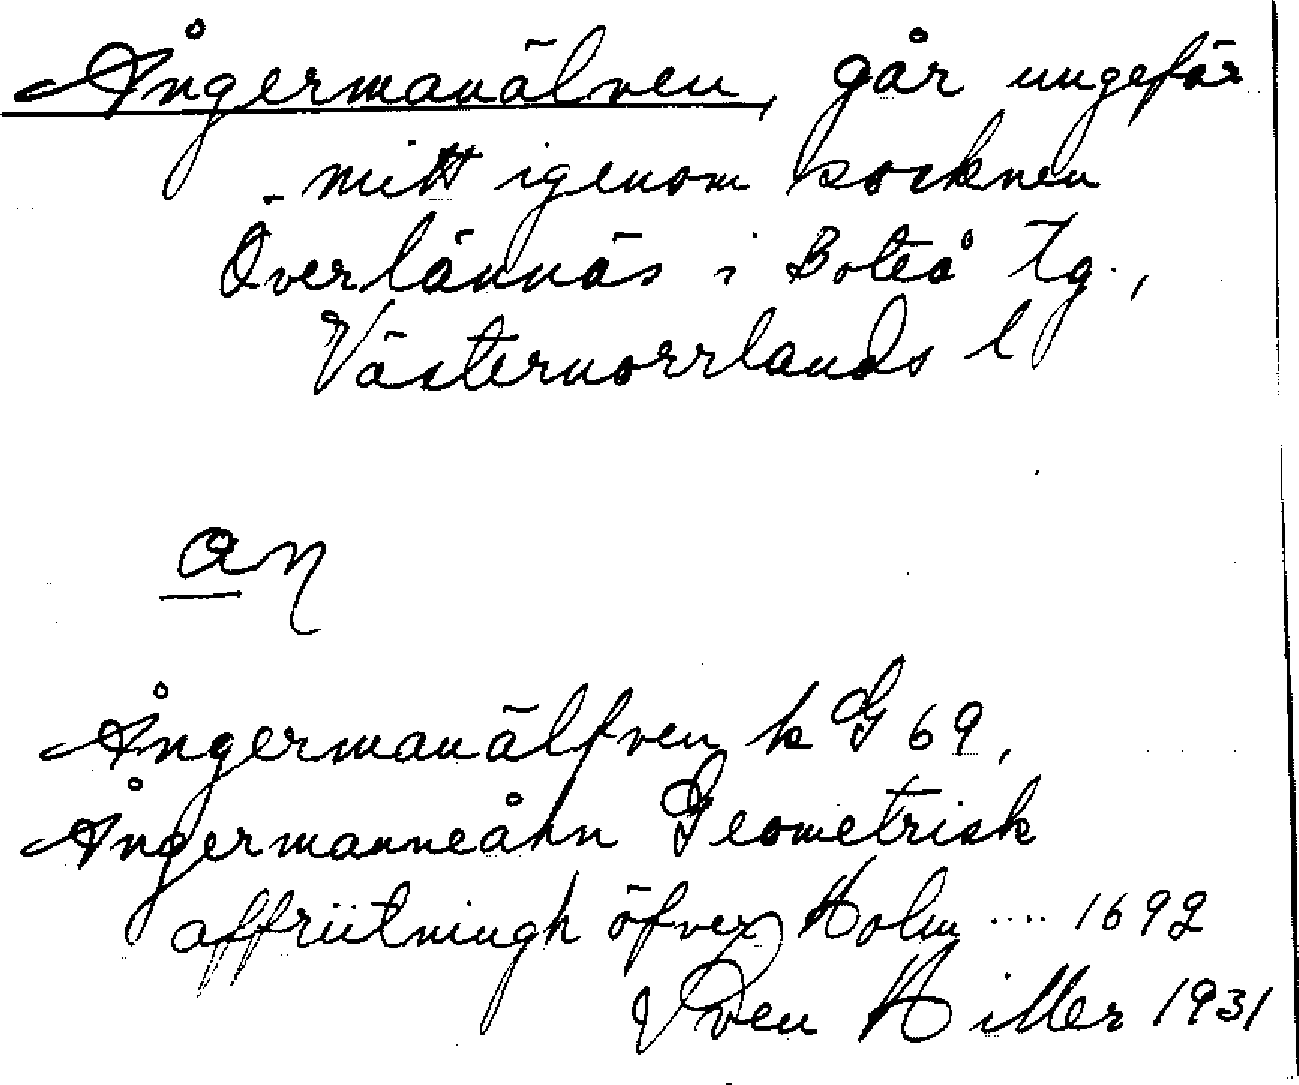 Ångermanälven, går ungefär
mitt igenom socknen
Överlännäs i Boteå tg.,
Västernorrlands l
aŋ
Ångermanälfven k G 69,
Ångermanneåhn Geometrisk
affriitningh öfver Holm .... 1692
Sven Hiller 1931